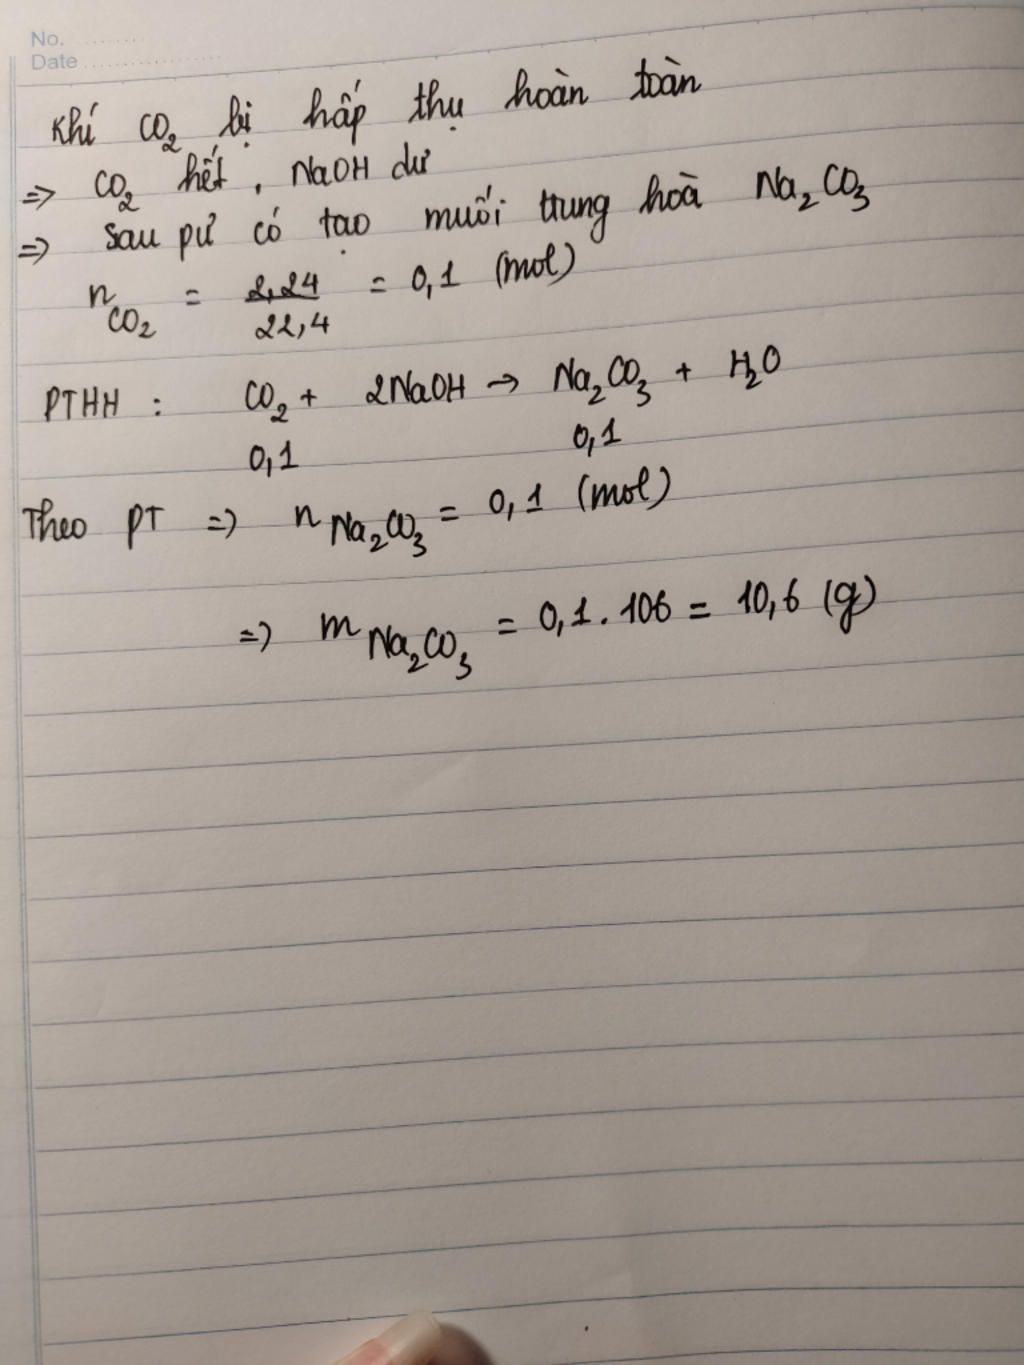 No. ........
Date ....................
Khí CO₂ bị hấp thụ hoàn toàn
=> CO₂ hết, NaOH dư
=> sau pư có tạo muối trung hoà Na₂CO₃
n CO₂ = 2,24 / 22,4 = 0,1 (mol)
PTHH : CO₂ + 2NaOH → Na₂CO₃ + H₂O
0,1 0,1
Theo PT => n Na₂CO₃ = 0,1 (mol)
=> m Na₂CO₃ = 0,1 . 106 = 10,6 (g)